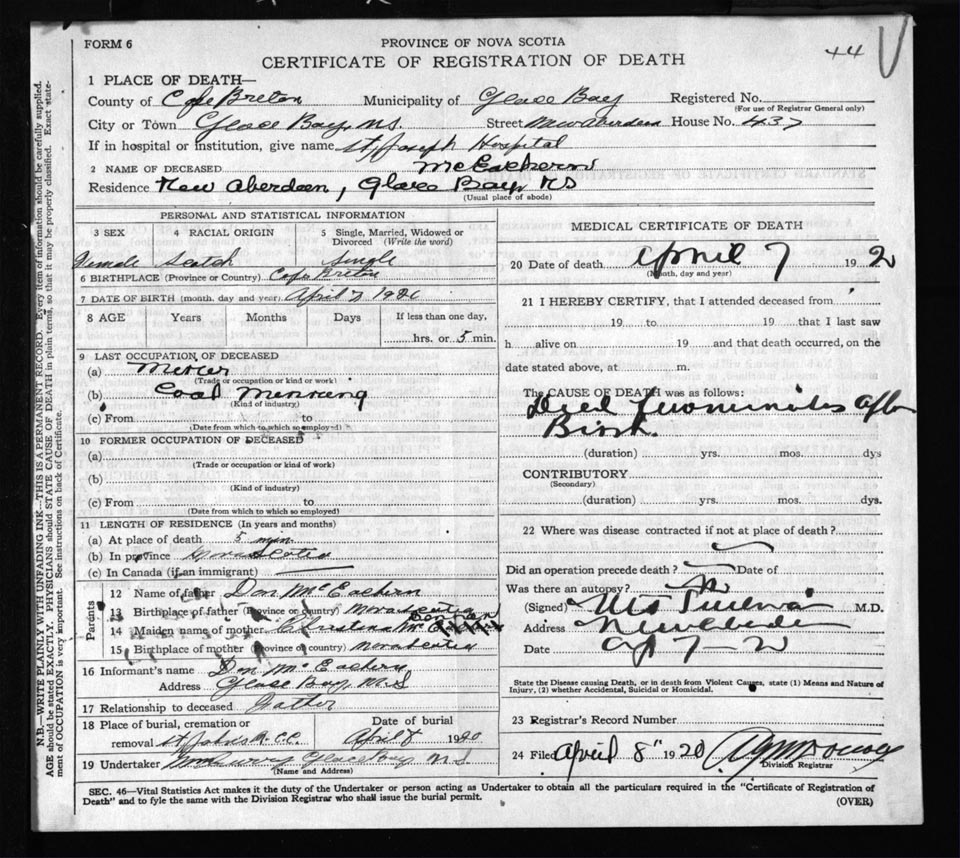 FORM 6
PROVINCE OF NOVA SCOTIA
44
CERTIFICATE OF REGISTRATION OF DEATH
1 PLACE OF DEATH—
County of Cape Breton Municipality of Glace Bay Registered No.
(For use of Registrar General only)
City or Town Glace Bay, NS Street New Aberdeen House No. 437
If in hospital or institution, give name St Joseph Hospital
2 NAME OF DECEASED McEachern
Residence New Aberdeen, Glace Bay, NS
(Usual place of abode)
PERSONAL AND STATISTICAL INFORMATION
3 SEX 4 RACIAL ORIGIN 5 Single, Married, Widowed or Divorced (Write the word)
Female Scotch Single
6 BIRTHPLACE (Province or Country) Cape Breton
7 DATE OF BIRTH (month, day and year) April 7 1920
8 AGE Years Months Days If less than one day,
hrs. or 5 min.
9 LAST OCCUPATION OF DECEASED
(a)
(Trade or occupation or kind or work)
(b) Coal
(Kind of industry)
(c) From to
(Date from which to which so employed)
10 FORMER OCCUPATION OF DECEASED
(a)
(Trade or occupation or kind of work)
(b)
(Kind of industry)
(c) From to
(Date from which to which so employed)
11 LENGTH OF RESIDENCE (In years and months)
(a) At place of death 5 min
(b) In province Nova Scotia
(c) In Canada (if an immigrant)
Parents
12 Name of father Don McEachern
13 Birthplace of father (Province or country) Nova Scotia
14 Maiden name of mother Christena Mc
15 Birthplace of mother (Province of country) Nova Scotia
16 Informant's name Don McEachern
Address Glace Bay, N.S
17 Relationship to deceased Father
18 Place of burial, cremation or Date of burial
removal April 8 1920
19 Undertaker Glace Bay NS
(Name and Address)
MEDICAL CERTIFICATE OF DEATH
20 Date of death April 7 192
(Month, day and year)
21 I HEREBY CERTIFY, that I attended deceased from
19 to 19 that I last saw
h alive on 19 and that death occurred, on the
date stated above, at m.
The CAUSE OF DEATH was as follows:
Died minutes after
Birth.
(duration) yrs. mos. dys
CONTRIBUTORY
(Secondary)
(duration) yrs. mos. dys.
22 Where was disease contracted if not at place of death?
Did an operation precede death? Date of
Was there an autopsy?
(Signed) M.D.
Address
Date Ap 7—2
State the Disease causing Death, or in death from Violent Causes, state (1) Means and Nature of
Injury, (2) whether Accidental, Suicidal or Homicidal.
23 Registrar's Record Number
24 Filed April 8" 1920
Division Registrar
SEC. 46—Vital Statistics Act makes it the duty of the Undertaker or person acting as Undertaker to obtain all the particulars required in the "Certificate of Registration of
Death" and to fyle the same with the Division Registrar who shall issue the burial permit.
(OVER)
N.B.—WRITE PLAINLY WITH UNFADING INK—THIS IS A PERMANENT RECORD. Every item of information should be carefully supplied.
AGE should be stated EXACTLY. PHYSICIANS should STATE CAUSE OF DEATH in plain terms, so that it may be properly classified. Exact statement of OCCUPATION is very important. See instructions on back of Certificate.